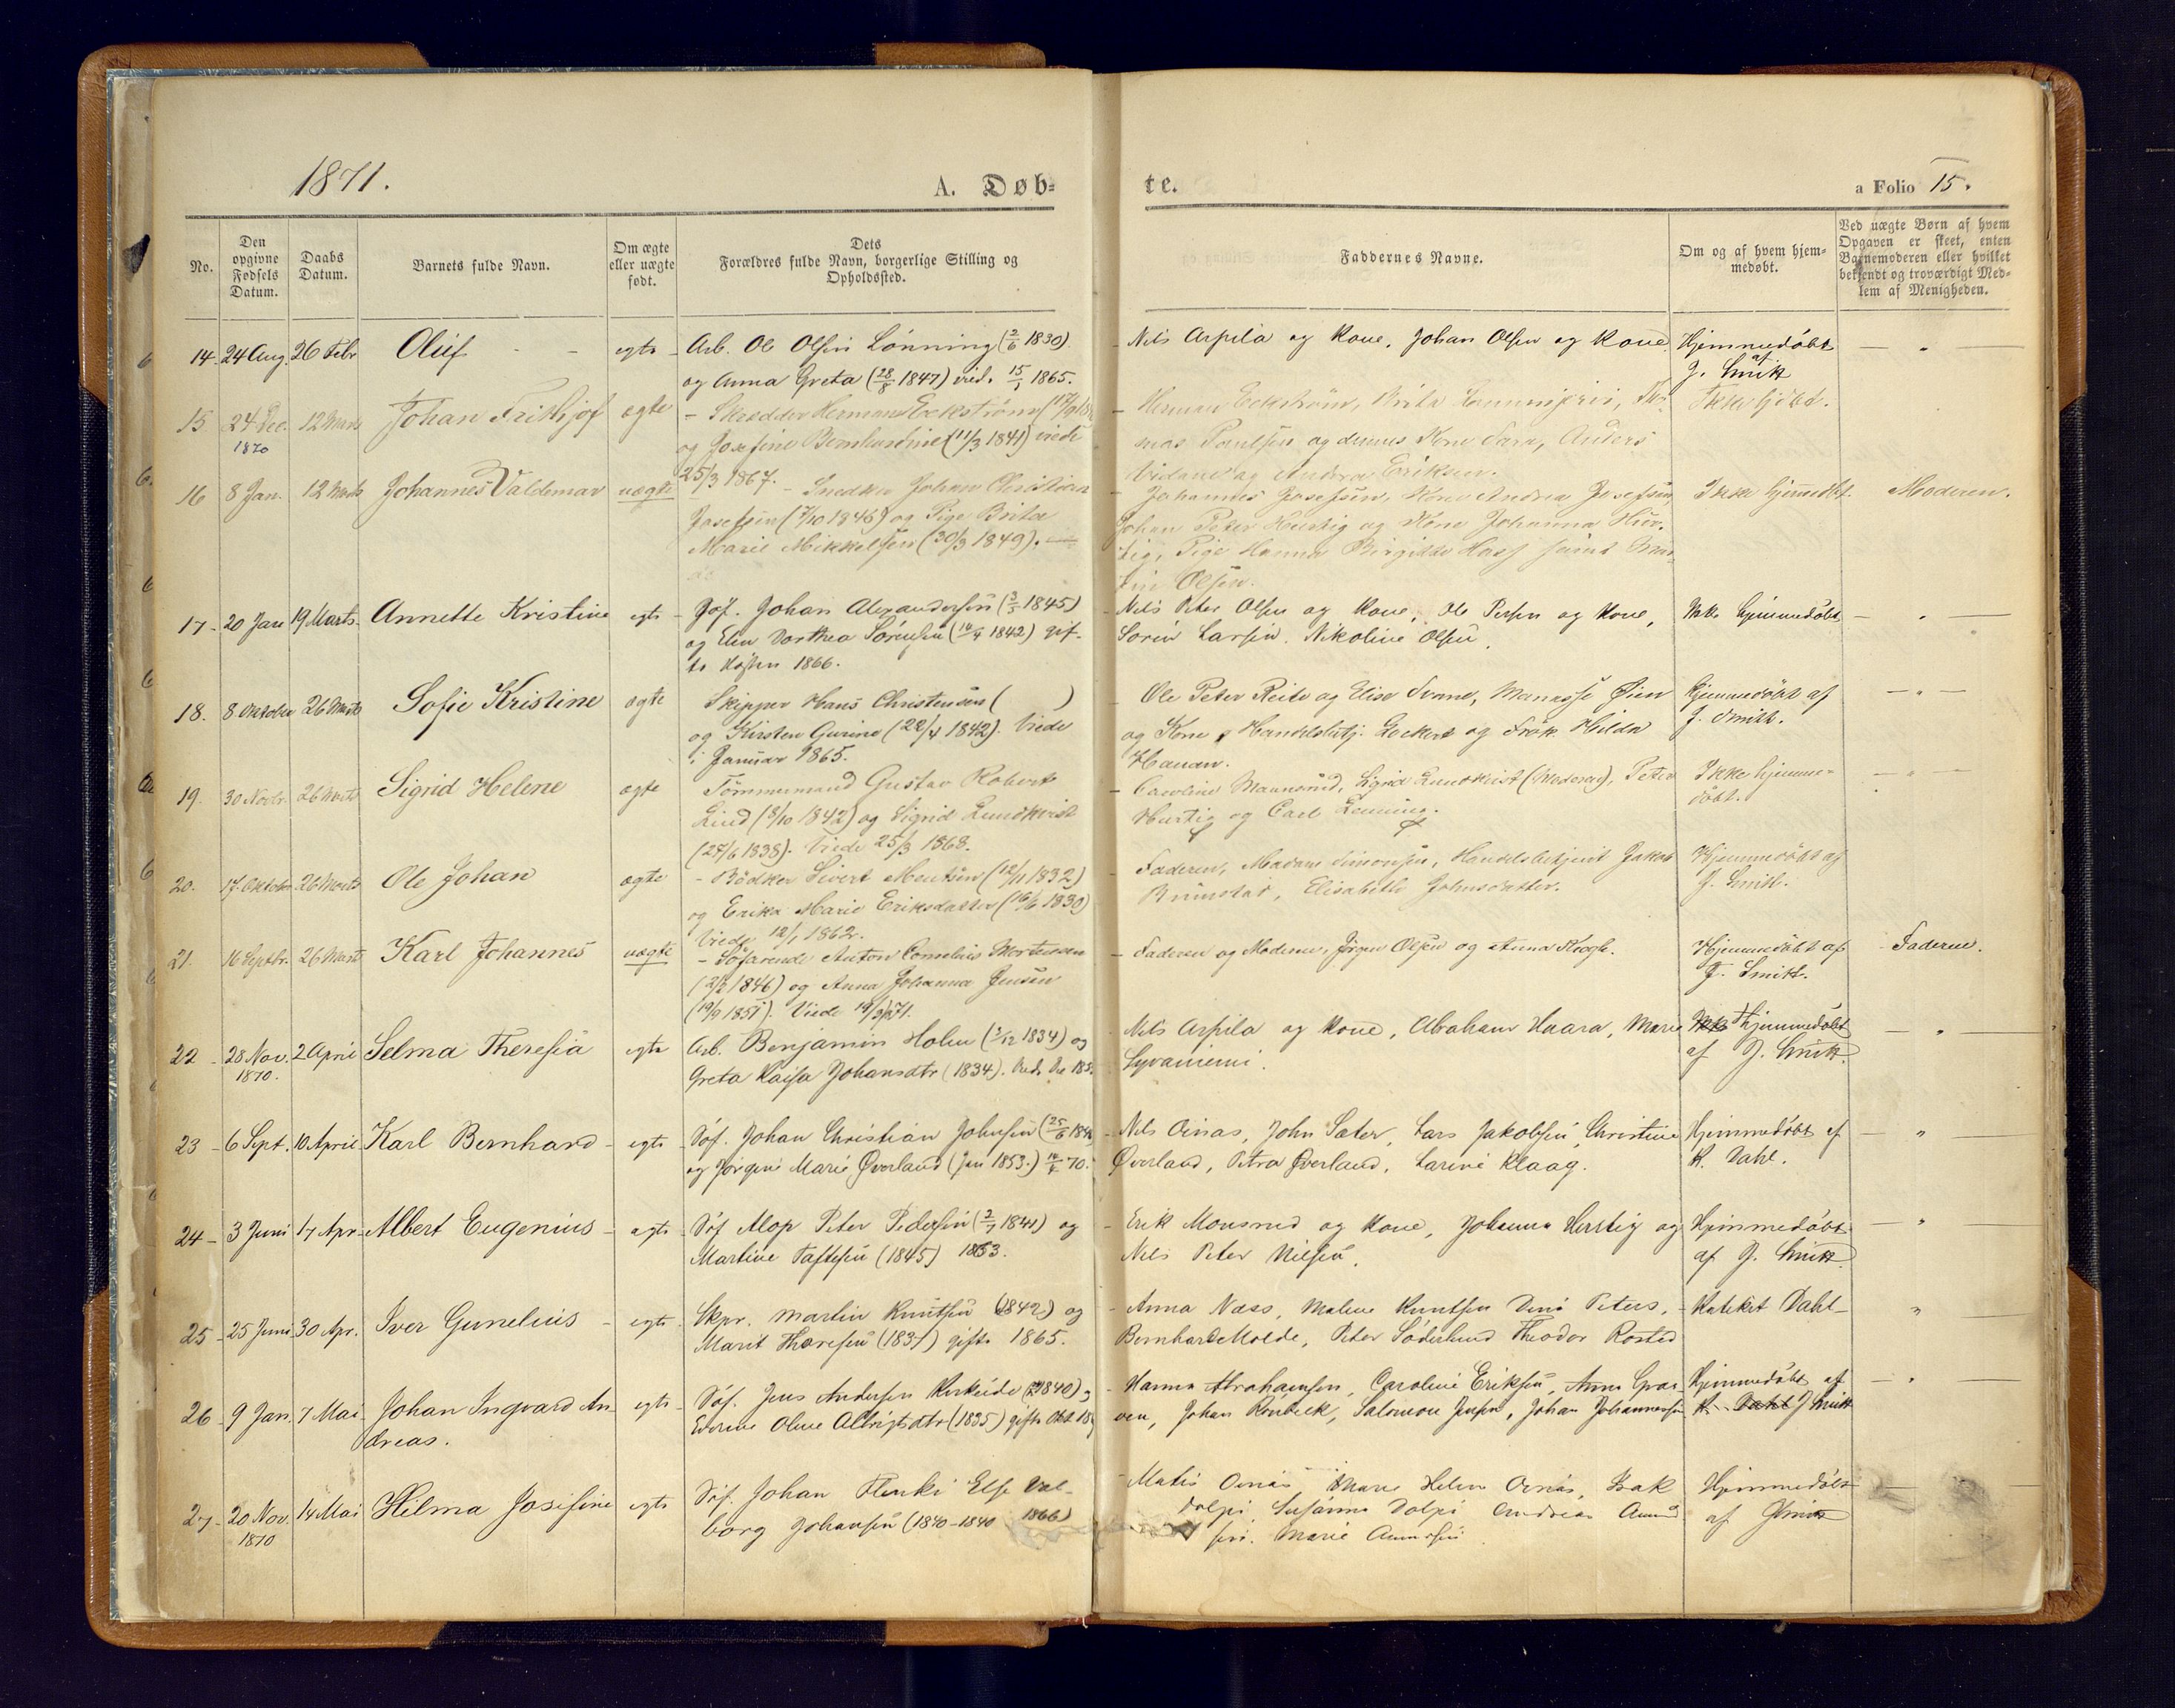 1871.
A. Døb=
te.
a Folio 15.
No.
Den opgivne Fødsels Datum.
Daabs Datum.
Barnets fulde Navn.
Om ægte eller uægte født.
Dets Forældres fulde Navn, borgerlige Stilling og Opholdssted.
Faddernes Navne.
Om og af hvem hjemmedøbt.
Ved uægte Børn af hvem Opgaven er skeet, enten Barnemoderen eller hvilket bekjendt og troværdigt Medlem af Menigheden.
14. 24 Aug. 26 Febr Oluf - - egte - Arb. Ol Olsen Lønning (2/6 1830) - Nils Arpila og Kone, Johan Olsen og Kone. Hjemmedøbt
og Anna Greta (28/8 1847) vied. 15/1 1865. af J. Smith
15 24 Dec. 12 Marts Johan Frithjof ægte - Skrædder Herman Eckstrøm - Herman Eckstrøm, Brita Tho- Ikke hjdøbt.
1870 og Josefine Bernhardine (11/3 1841) viede mas Paulsen og dennes Kone Sara, Anders
25/3 1867. og Andrea Eriksen.
16 8 Jan. 12 Marts Johannes Valdemar uægte - Snedker Johan Christian - Johannes Josefsen, Kone Andrea Josefsen, Ikke hjemdbt. Moderen.
Josefsen (7/10 1846) og Pige Brita Johan Peter Hurtig og Kone Johanna Hur-
Marie Mikkelsen (30/3 1849). tig, Pige Hanna Birgitte Hass samt
Olsen.
17 - 20 Jan 19 Marts. Annette Kristine egte - Søf. Johan Alexandersen (3/3 1845) - Nils Peter Olsen og Kone, Ole Persen og Kone, Ikke hjemmedøbt - " -
og Elen Dorthea Sørensen (14/4 1842) gif- Soren Larsen. Nikoline Olsen.
te Høsten 1866.
18. 8 Oktober 26 Marts Sofie Kristine ægte Skipper Hans Christensen ( ) - Ole Peter Reite og Elise Svane, Manasse Øien Hjemmedøbt af - " -
og Kirsten Gurine (22/4 1842). Viede og Kone, Handelsbetj. Lockert og Frøk Hilda J. Smith.
i Januar 1865. Hanan.
19. 30 Novbr. 26 Marts Sigrid Helene ægte Tømmermand Gustav Robert - Caroline Maunsund, Sigrid Lundkvist (Moderen), Peter Ikke hjemme- - " -
Lind (8/10 1842) og Sigrid Lundkvist Hurtig og Carl Lenning. døbt.
(27/6 1838). Viede 25/3 1868.
20. 17. Oktober 26 Marts Ole Johan ægte - Bødker Sivert Mentsen (12/11 1832) Faderen, Madam Simonsen, Handelsbetjent Jakob Hjemmedøbt af
og Erika Marie Eriksdatter (16/6 1830) Brunstad, Elisabeth Johnsdatter. J. Smith.
Viede 12/1 1862.
21. 16 Septbr. 26 Marts Karl Johannes uægte - Søfarende Anton Cornelius Mortensen - Faderen og Moderen, Jørgen Olsen og Anna Krogh. Hjemmedøbt af - Faderen.
(2/2 1846) og Anna Johanna Jensen J. Smith.
(19/9 1851). Viede 19/3 1871.
22 - 28 Nov. 2 April Selma Theresia egte Arb. Benjamin Holm (3/12 1834) og - Nils Arpila og Kone, Abraham Haara, Marie Ikke Hjemmedøbt - " -
1870. Greta Kaisa Johansdtr (1834). Syvaniemi. af J. Smith.
23 - 6 Sept. 10 April Karl Bernhard - egte - Søf. Johan Christian Johnsen - Nils Oinas, John Sæter, Lars Jakobsen, Christine Hjemmedøbt af - " -
og Jørgine Marie Øverland (Jan 1853.) Øverland, Petra Øverland, Larine Klaag. K. Dahl.
24 - 3 Juni 17 Apr. Albert Eugenius - egte - Søf Alop Peter Pedersen (2/7 1841) og - Erik Monsrud og Kone, Johanna Hurtig og Hjemmedøbt - " -
Martine Taftesen (1845) 1863. Nils Peter Nilsen. af J. Smith
25 - 25 Juni 30 Apr. Iver Gunelius - egte - Skpr. Martin Knutsen (1842) og - Anna Næss, Malene Knutsen Dina Peters, - Kateket Dahl - "
Marit Thoresen (1837) gifte 1865. Bernhard Molde, Peter Söderlund Theodor Rosted
26 - 9 Jan. 7 Mai Johan Ingvard An- egte - Søf. Jens Andersen (1840) - Hanna Abrahamsen, Caroline Eriksen, Anna Hjemmedøbt af - "
dreas. Oline Albrigtsdtr (1835) gifte Johan Rönbeck, Salomon Jensen, Johan Johannessen K. Dahl J Smith
27 - 20 Nov. 14 Mai Hilma Josefine egte Søf. Johan Flinki Else Val- - Matis Oinas, Marie Helene Oinas, Isak Hjemmedøbt
1870 borg Johansen (1840-1840 1866) Dolpi, Susanna Dolpi Andreas af J Smith
sen. Marie